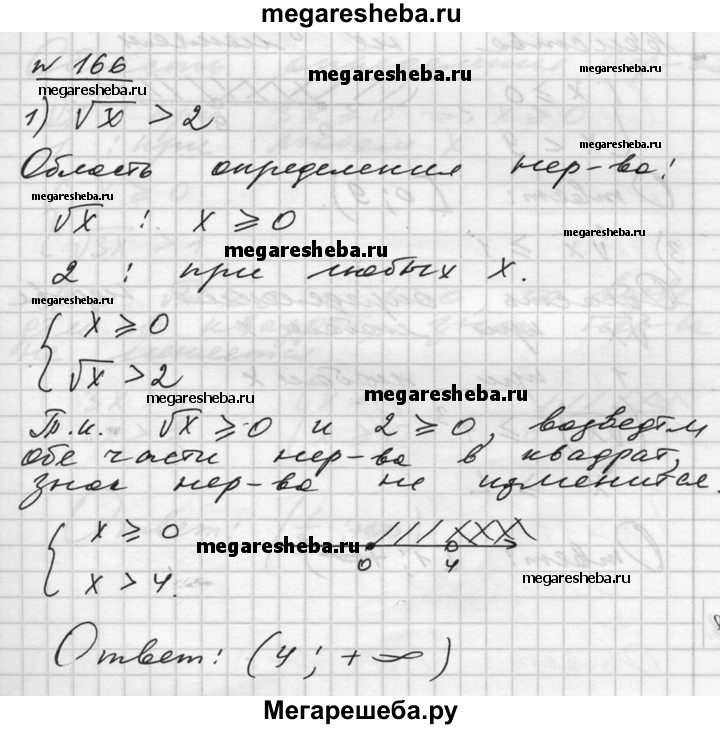 megaresheba.ru
№ 166
megaresheba.ru
megaresheba.ru
1) √x > 2
megaresheba.ru
Область определения нер-ва:
megaresheba.ru
√x : x ⩾ 0
megaresheba.ru
megaresheba.ru
2 : при любых x.
megaresheba.ru
{ x ⩾ 0
√x > 2
megaresheba.ru
megaresheba.ru
Т.к. √x ⩾ 0 и 2 ⩾ 0, возведём
обе части нер-ва в квадрат,
знак нер-ва не изменится.
{ x ⩾ 0
megaresheba.ru
x > 4.
0 4
megaresheba.ru
Ответ: (4; +∞)
Мегарешеба.ру